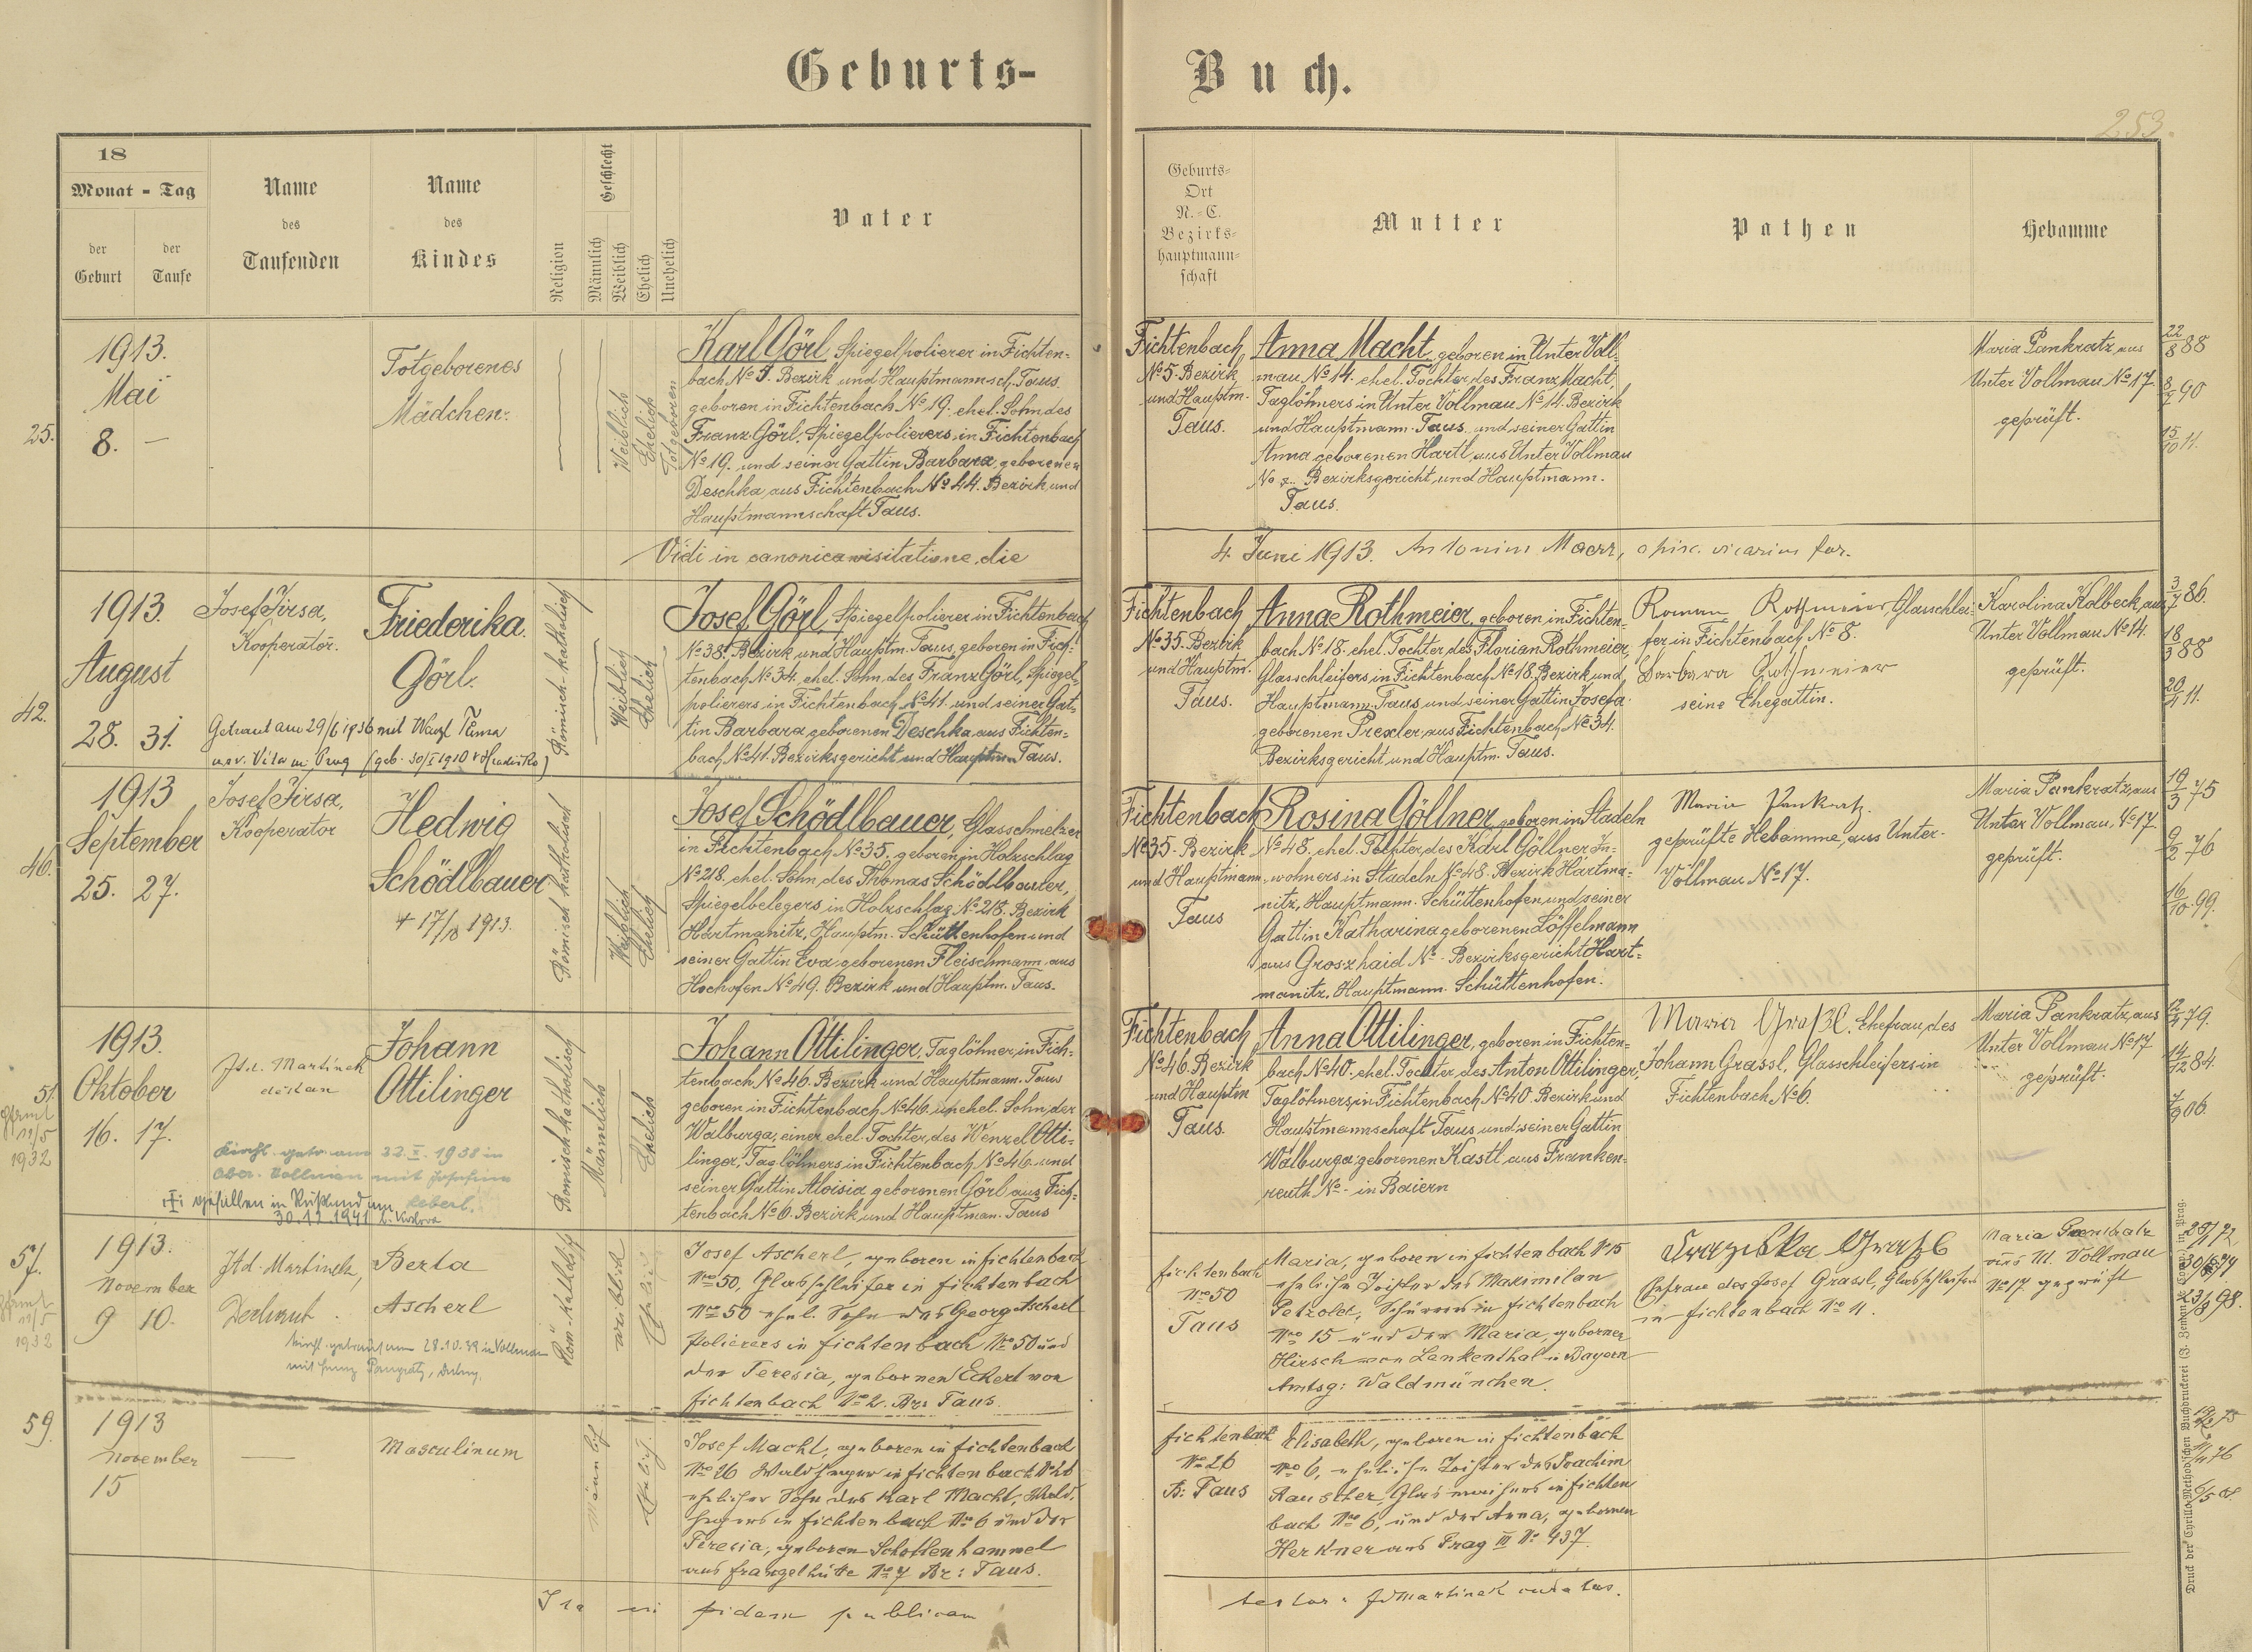 Geburts-
Buch.
253.
18
Monat - Tag
der
Geburt
der
Taufe
Name
des
Taufenden
Name
des
Kindes
Religion
Geschlecht
Männlich
Weiblich
Ehelich
Unehelich
Vater
Geburts-
Ort
N.-C.
Bezirks-
hauptmann-
schaft
Mutter
Pathen
Hebamme
25.
1913.
Mai
8. —
Totgeborenes
Mädchen.
Weiblich
Ehelich
Totgeboren
Karl Görl, Spiegelpolierer in Fichten-
bach No 5. Bezirk und Hauptmannsch. Taus.
geboren in Fichtenbach No 19. ehel. Sohn des
Franz Görl, Spiegelpolierers, in Fichtenbach
No 19. und seiner Gattin Barbara, geborenen
Deschka, aus Fichtenbach No 44. Bezirk und
Hauptmannschaft Taus.
Fichtenbach
No 5. Bezirk
und Hauptm.
Taus.
Anna Macht, geboren in Unter Voll-
mau No 14. ehel. Tochter des Franz Macht,
Taglöhners in Unter Vollmau No 14. Bezirk
und Hauptmann. Taus. und seiner Gattin
Anna geborenen Hartl, aus Unter Vollmau
No Bezirksgericht und Hauptmann.
Taus.
Maria Pankratz, aus
Unter Vollmau No 17
geprüft.
22/8 88
8/7 90
15/10 11.
Vidi in canonica visitatione, die
4. Juni 1913. Antonius
42.
1913.
August
28. 31.
Josef Jirsa,
Kooperator.
Friederika
Görl.
Getraut am 29/6 1936 mit
in Prag (geb. 30/I 1910
Römisch-katholisch
Weiblich
Ehelich
Josef Görl, Spiegelpolierer in Fichtenbach
No 38. Bezirk und Hauptm. Taus, geboren in Fich-
tenbach No 34. ehel. Sohn des Franz Görl, Spiegel-
polierers in Fichtenbach, No 41. und seiner Gat-
tin Barbara geborenen Deschka aus Fichten-
bach No 41. Bezirksgericht und Hauptm. Taus.
Fichtenbach
No 35. Bezirk
und Hauptm.
Taus.
Anna Rothmeier, geboren in Fichten-
bach No 18. ehel. Tochter des Florian Rothmeier,
Glasschleifers, in Fichtenbach, No 18. Bezirk und
Hauptmann. Taus, und seiner Gattin Josefa
geborenen Prexler, aus Fichtenbach No 34.
Bezirksgericht und Hauptm. Taus.
Roman Rothmeier Glasschlei-
fer in Fichtenbach No 8.
Barbara Rothmeier
seine Ehegattin.
Karolina Kolbeck, aus
Unter Vollmau No 14.
geprüft.
3/7 86.
18/3 88
20/4 11.
46.
1913
September
25. 27.
Josef Jirsa,
Kooperator
Hedwig
Schödlbauer
+ 17/10 1913.
Römisch katholisch
Weiblich
Ehelich
Josef Schödlbauer, Glasschmelzer
in Fichtenbach, No 35. geboren in Holzschlag
No 218. ehel. Sohn, des Thomas Schödlbauer,
Spiegelbelegers in Holzschlag No 218. Bezirk
Hartmanitz, Hauptm. Schüttenhofen und
seiner Gattin Eva, geborenen Fleischmann aus
Hochofen No 49. Bezirk und Hauptm. Taus.
Fichtenbach
No 35. Bezirk
und Hauptmann.
Taus
Rosina Göllner, geboren in Stadeln
No 48. ehel. Tochter, des Karl Göllner In-
wohners, in Stadeln No 48. Bezirk Hartma-
nitz, Hauptmann. Schüttenhofen und seiner
Gattin Katharina geborenen Löffelmann
aus Groszhaid No - Bezirksgericht Hart-
manitz, Hauptmann. Schüttenhofen.
Maria Pankratz.
geprüfte Hebamme, aus Unter-
Vollmau No 17.
Maria Pankratz, aus
Unter Vollmau, No 17.
geprüft.
19/3 75
9/2 76
16/10 99.
51.
1932
1913.
Oktober
16. 17.
Jtd. Martinek
dekan
Johann
Ottilinger
Kirchl. getr. am 22. X. 1938 in
Ober-Vollmau mit Josefine
Röberl.
gefallen in Rußland am
30.12.1941
Römisch-katholisch
Männlich
Ehelich
Johann Ottilinger, Taglöhner, in Fich-
tenbach, No 46. Bezirk und Hauptmann. Taus
geboren in Fichtenbach, No 46. unehel. Sohn, der
Walburga, einer ehel. Tochter, des Wenzel Otti-
linger, Taglöhners in Fichtenbach, No 46. und
seiner Gattin Aloisia geborenen Görl aus Fich-
tenbach No 6. Bezirk und Hauptman. Taus
Fichtenbach
No 46. Bezirk
und Hauptm
Taus.
Anna Ottilinger, geboren in Fichten-
bach No 40. ehel. Tochter, des Anton Ottilinger,
Taglöhners, in Fichtenbach, No 40. Bezirk und
Hauptmannschaft Taus und seiner Gattin
Walburga, geborenen Kastl, aus Franken-
reuth No - in Baiern
Maria Graßl. Ehefrau, des
Johann Grassl, Glasschleifers in
Fichtenbach No 6.
Maria Pankratz, aus
Unter Vollmau No 17
geprüft.
12/4 79.
14/12 84.
06.
57.
1932
1913.
November
9 10.
Jtd. Martinek,
Dechant.
Berta
Ascherl
kirchl. getraut am 28.10.39 in Vollmau
mit
Röm. Katholisch
weiblich
Ehelich
Josef Ascherl, geboren in Fichtenbach
No 50, Glasschleifer in Fichtenbach
No 50 ehel. Sohn des Georg Ascherl
Polierers in Fichtenbach No 50 und
der Teresia, gebornen Eckert von
Fichtenbach No 2. Bez Taus.
Fichtenbach
No 50
Taus
Maria, geboren in Fichtenbach No 15
eheliche Tochter des Maximilian
Petzold, in Fichtenbach
No 15 und der Maria, geborner
Hirsch von Lenkenthal in Bayern
Amtsg: Waldmünchen.
Franziska Graßl
Ehefrau des Josef Grassl, Glasschleifers
in Fichtenbach No 11.
Maria Pankratz
aus U. Vollmau
No 17 geprüft
59.
1913
November
15
—
Masculinum
Männlich
Ehelich
Josef Macht, geboren in Fichtenbach
No 26 Waldheger in Fichtenbach No 26
ehelicher Sohn des Karl Macht, Wald-
hegers in Fichtenbach No 6 und der
Teresia, geboren Schottenhammel
aus Franzelhütte No 7 Bz: Taus.
Fichtenbach
No 26
B: Taus
Elisabeth, geboren in Fichtenbach
No 6, eheliche Tochter des Joachim
Rauscher, in Fichten
bach No 6, und der Anna, gebornen
Herkner aus Prag III No 437.
Ita in fidem publicam
testor: Martinek
Druck der Cyrillo-Method'schen Buchdruckerei (J. Zeman & Comp.) in Prag.